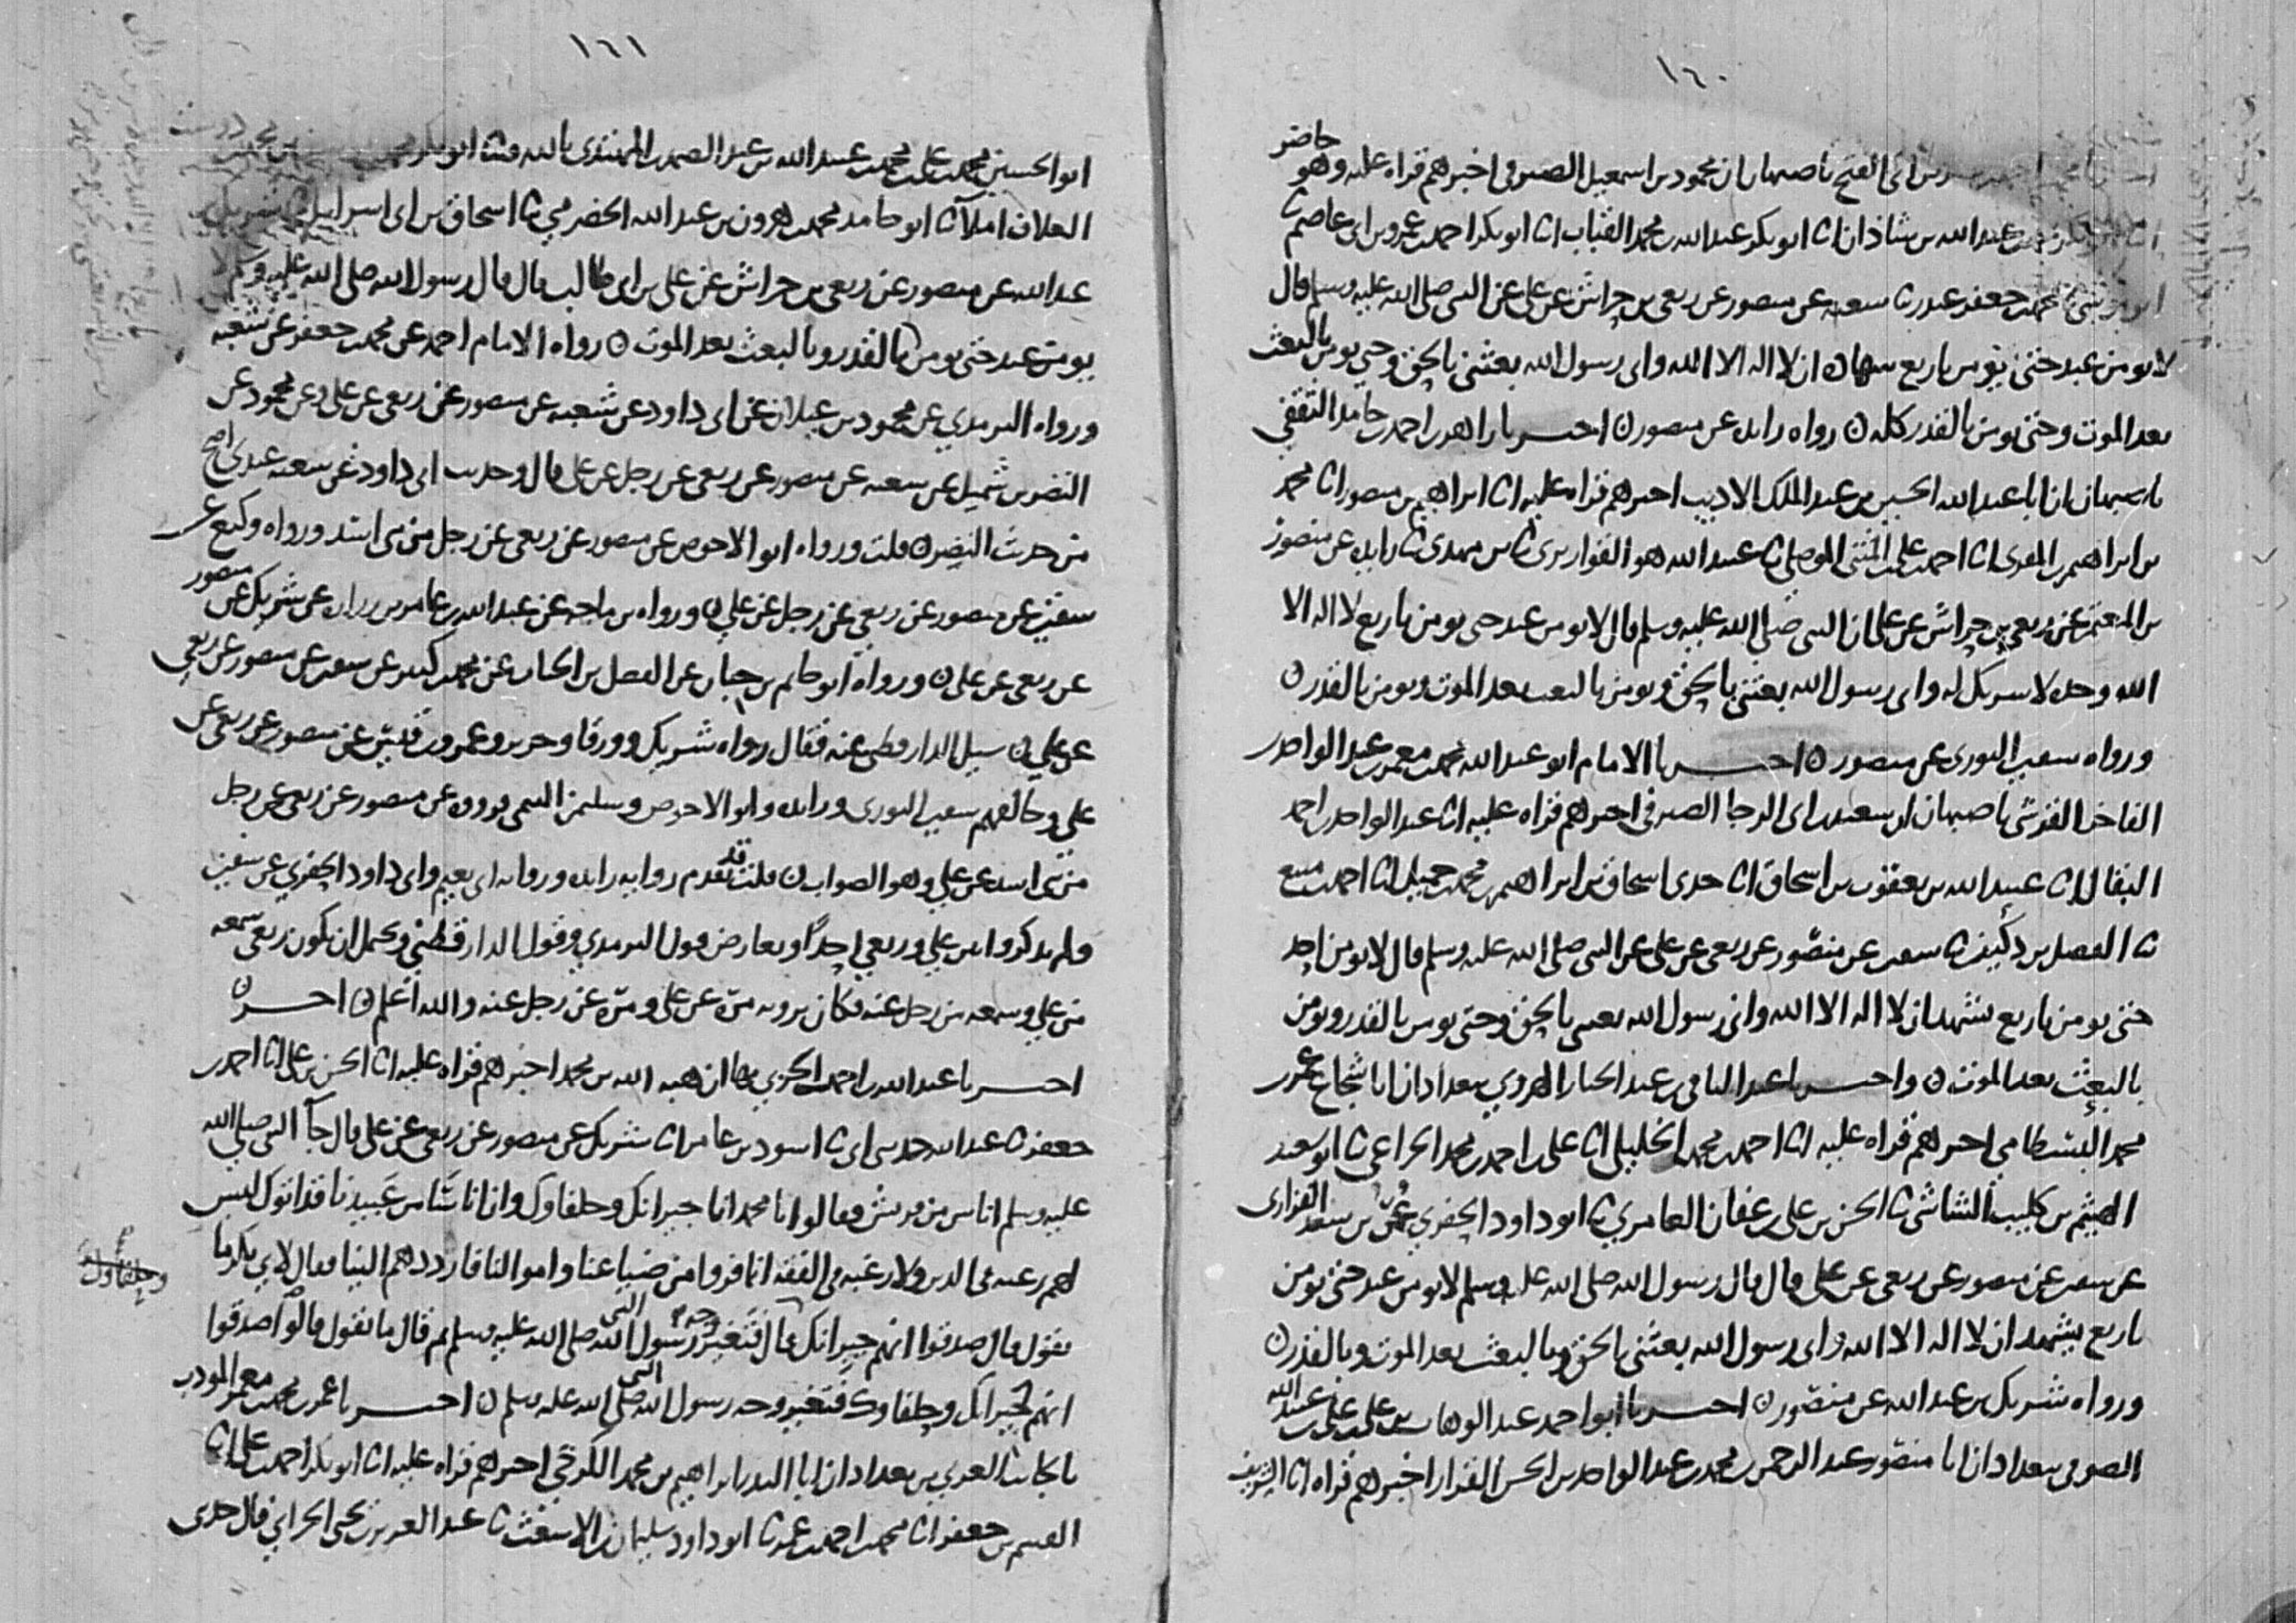 ١٦٠
بن أبي الفتح باصبهان ان محمود بن اسمعيل الصيرفي اخبرهم قراه عليه وهو حاضر
عبد الله بن شاذان انا ابو بكر عبد الله بن محمد القباب انا ابو بكر احمد بن عمرو بن ابي عاصم نا
محمد بن جعفر غندر نا شعبه عن منصور عن ربعي بن حراش عن علي عن النبي صلى الله عليه وسلم قال
لا يومن عبد حتى يومن باربع ان لا اله الا الله واني رسول الله بعثني بالحق وحتى يومن بالبعث
بعد الموت وحتى يومن بالقدر كله ن رواه زايده عن منصور ن اخبرنا زاهر بن احمد بن حامد الثقفي
باصبهان ان ابا عبد الله الحسين بن عبد الملك الاديب اخبرهم قراه عليه انا ابراهيم بن منصور انا محمد
بن ابراهيم بن المقرى انا احمد بن علي بن المثنى الموصلي نا عبيد الله هو القواريري نا بن مهدي نا زايده عن منصور
بن المعتمر عن ربعي بن حراش عن علي ان النبي صلى الله عليه وسلم قال لا يومن عبد حتى يومن باربع لا اله الا
الله وحده لا شريك له واني رسول الله بعثني بالحق ويومن بالبعث بعد الموت ويومن بالقدر ن
ورواه سفين الثوري عن منصور ن اخبرنا الامام ابو عبد الله محمد بن معمر بن عبد الواحد بن
الفاخر القرشي باصبهان ان سعيد بن ابي الرجا الصيرفي اخبرهم قراه عليه انا عبد الواحد بن احمد
البقال انا عبيد الله بن يعقوب بن اسحاق انا جدي اسحاق بن ابراهيم بن محمد بن جميل انا احمد بن منيع
نا الفضل بن دكين نا سفين عن منصور عن ربعي عن علي عن النبي صلى الله عليه وسلم قال لا يومن احد
حتى يومن باربع يشهد ان لا اله الا الله واني رسول الله بعثني بالحق وحتى يومن بالقدر ويومن
بالبعث بعد الموت ن واخبرنا عبد الباقي بن عبد الجبار الهروي ببغداد ان ابا شجاع عمر بن
محمد البسطامي اخبرهم قراه عليه انا احمد بن محمد الخليلي انا علي بن احمد بن محمد الخزاعي نا ابو سعيد
الهيثم بن كليب الشاشي نا الحسن بن علي بن عفان العامري نا ابو داود الحفري عمر بن سعد الفزاري
عن سفين عن منصور عن ربعي عن علي قال قال رسول الله صلى الله عليه وسلم لا يومن عبد حتى يومن
باربع يشهد ان لا اله الا الله واني رسول الله بعثني بالحق وبالبعث بعد الموت وبالقدر ن
ورواه شريك بن عبد الله عن منصور ن اخبرنا ابو احمد عبد الوهاب بن علي بن علي بن عبيد الله
الصوفي ببغداد ان ابا منصور عبد الرحمن بن محمد بن عبد الواحد بن الحسن القزاز اخبرهم قراه انا الشريف
١٦١
ابو الحسين محمد بن علي بن محمد بن عبيد الله بن عبد الصمد بن المهتدي بالله نا ابو بكر محمد
العلاف املا نا ابو حامد محمد بن هرون بن عبد الله الحضرمي نا اسحاق بن ابي اسرايل نا شريك بن
عبد الله عن منصور عن ربعي بن حراش عن علي بن ابي طالب قال قال رسول الله صلى الله عليه وسلم لا
يومن عبد حتى يومن بالقدر وبالبعث بعد الموت ن رواه الامام احمد عن محمد بن جعفر عن شعبه
ورواه الترمذي عن محمود بن غيلان عن ابي داود عن شعبه عن منصور عن ربعي عن علي وعن محمود عن
النضر بن شميل عن شعبه عن منصور عن ربعي عن رجل عن علي قال وحديث ابي داود عن شعبه عندي اصح
من حديث النضر ن قلت ورواه ابو الاحوص عن منصور عن ربعي عن رجل من بني اسد ورواه وكيع عن
سفين عن منصور عن ربعي عن رجل عن علي ن ورواه بن ماجه عن عبد الله بن عامر بن زراره عن شريك عن منصور
عن ربعي عن علي ن ورواه ابو حاتم بن حبان عن الفضل بن الحباب عن محمد بن كثير عن سفين عن منصور عن ربعي
عن علي ن سيل الدارقطني عنه فقال رواه شريك وورقا وجرير وعمرو بن ابي قيس عن منصور عن ربعي عن
علي وخالفهم سفين الثوري وزايده وابو الاحوص وسليمن التيمي فرووه عن منصور عن ربعي عن رجل
من بني اسد عن علي وهو الصواب ن قلت قد تقدم روايه زايده وروايه ابي نعيم وابي داود الحفري عن سفين
ولم يذكروا بين علي وربعي احدًا ويعارض قول الترمذي وقول الدارقطني ويحمل ان يكون ربعي سمعه
من علي وسمعه من رجل عنه فكان يرويه مرّه عن علي ومرّه عن رجل عنه والله اعلم ن اخبرنا
اخبرنا عبد الله بن احمد الحربي بها ان هبه الله بن محمد اخبرهم قراه عليه انا الحسن بن علي انا احمد بن
جعفر نا عبد الله حدثني ابي نا اسود بن عامر انا شريك عن منصور عن ربعي عن علي قال جآ النبي صلى الله
عليه وسلم اناس من قريش فقالوا يا محمد انا جيرانك وحلفاوك وان اناسًا من عبيدنا قد اتوك ليس
لهم رغبه في الدين ولا رغبه في الفقه انما فروا من ضياعنا واموالنا فارددهم الينا فقال لابي بكر ما
وحلفاوك
تقول قال صدقوا انهم جيرانك قال فتغير وجه رسول الله النبي صلى الله عليه وسلم ثم قال ما تقول قالوا صدقوا
انهم لجيرانك وحلفاوك فتغير وجه رسول الله النبي صلى الله عليه وسلم ن اخبرنا عمر بن محمد بن معمر المودب
بالجانب الغربي من بغداد ان ابا البدر ابراهيم بن محمد الكرخي اخبرهم قراه عليه انا ابو بكر احمد بن علي انا
القسم بن جعفر انا محمد بن احمد بن عمرو نا ابو داود سليمان بن الاشعث نا عبد العزيز بن يحيى الحراني قال حدثني